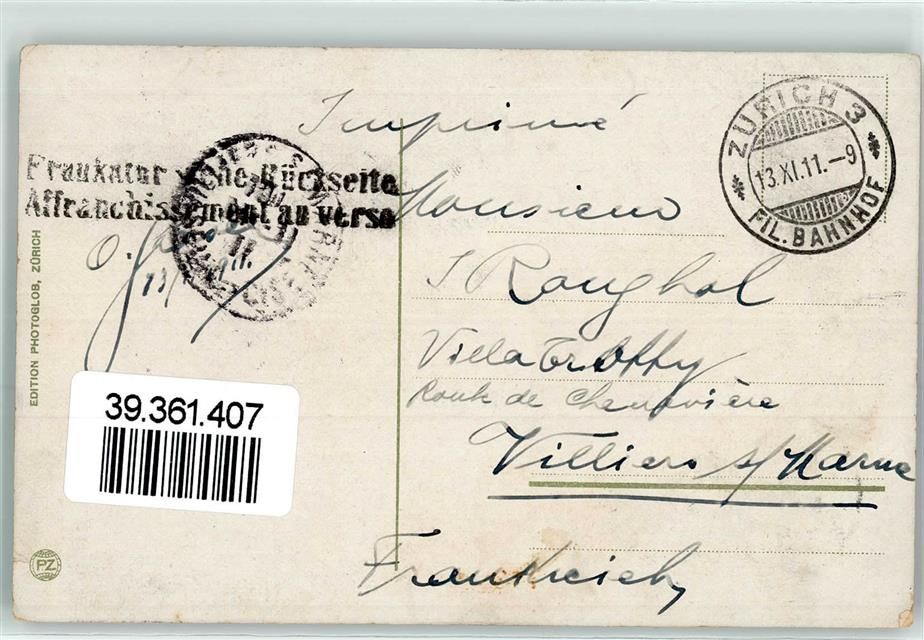 Imprimé
ZÜRICH 3
13.XI.11.-9
FIL. BAHNHOF
Frankatur siehe Rückseite
Affranchissement au verso
Monsieur
J Roughol
Villa
Route de Chenevière
Villiers s/Marne
Frankreich
EDITION PHOTOGLOB, ZÜRICH
39.361.407
PZ